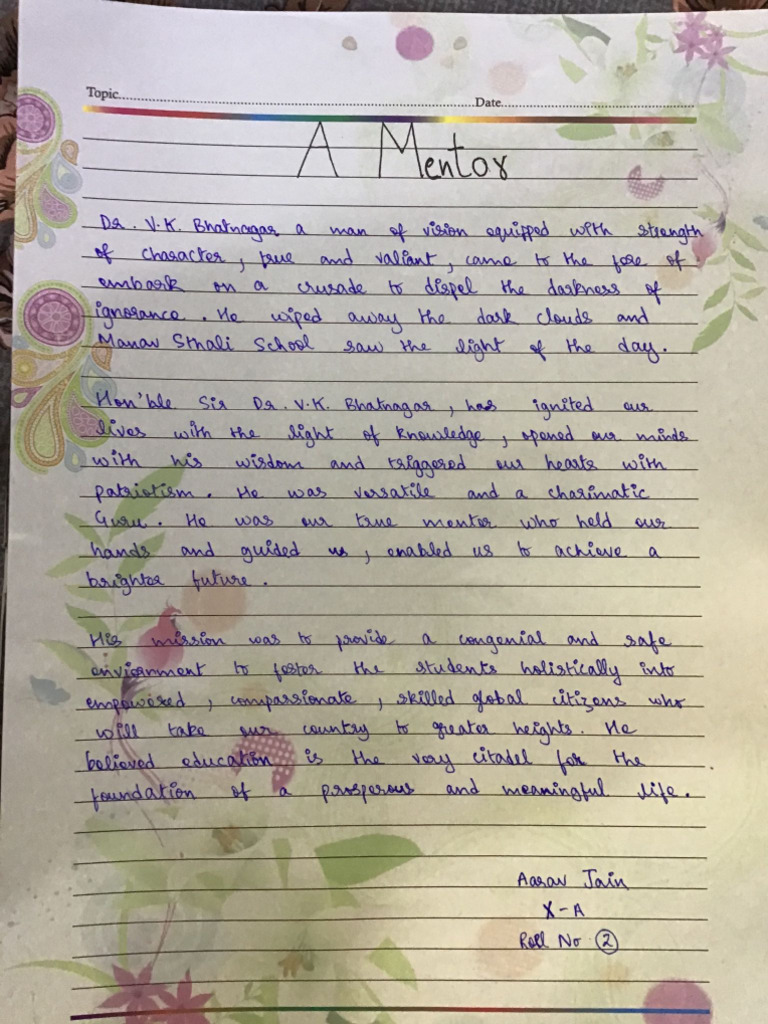 Topic..........Date..........
A Mentor
Dr. V.K. Bhatnagar a man of vision equipped with strength
of character, true and valiant, came to the fore of
embark on a crusade to dispel the darkness of
ignorance. He wiped away the dark clouds and
Manav Sthali School saw the light of the day.
Hon'ble Sir Dr. V.K. Bhatnagar, has ignited our
lives with the light of knowledge, opened our minds
with his wisdom and triggered our hearts with
patriotism. He was versatile and a charimatic
Guru. He was our true mentor who held our
hands and guided us, enabled us to achieve a
brighter future.
His mission was to provide a congenial and safe
enviornment to foster the students holistically into
empowered, compassionate, skilled global citizens who
will take our country to greater heights. He
believed education is the very citadel for the
foundation of a prosperous and meaningful life.
Aarav Jain
X-A
Roll No. 2